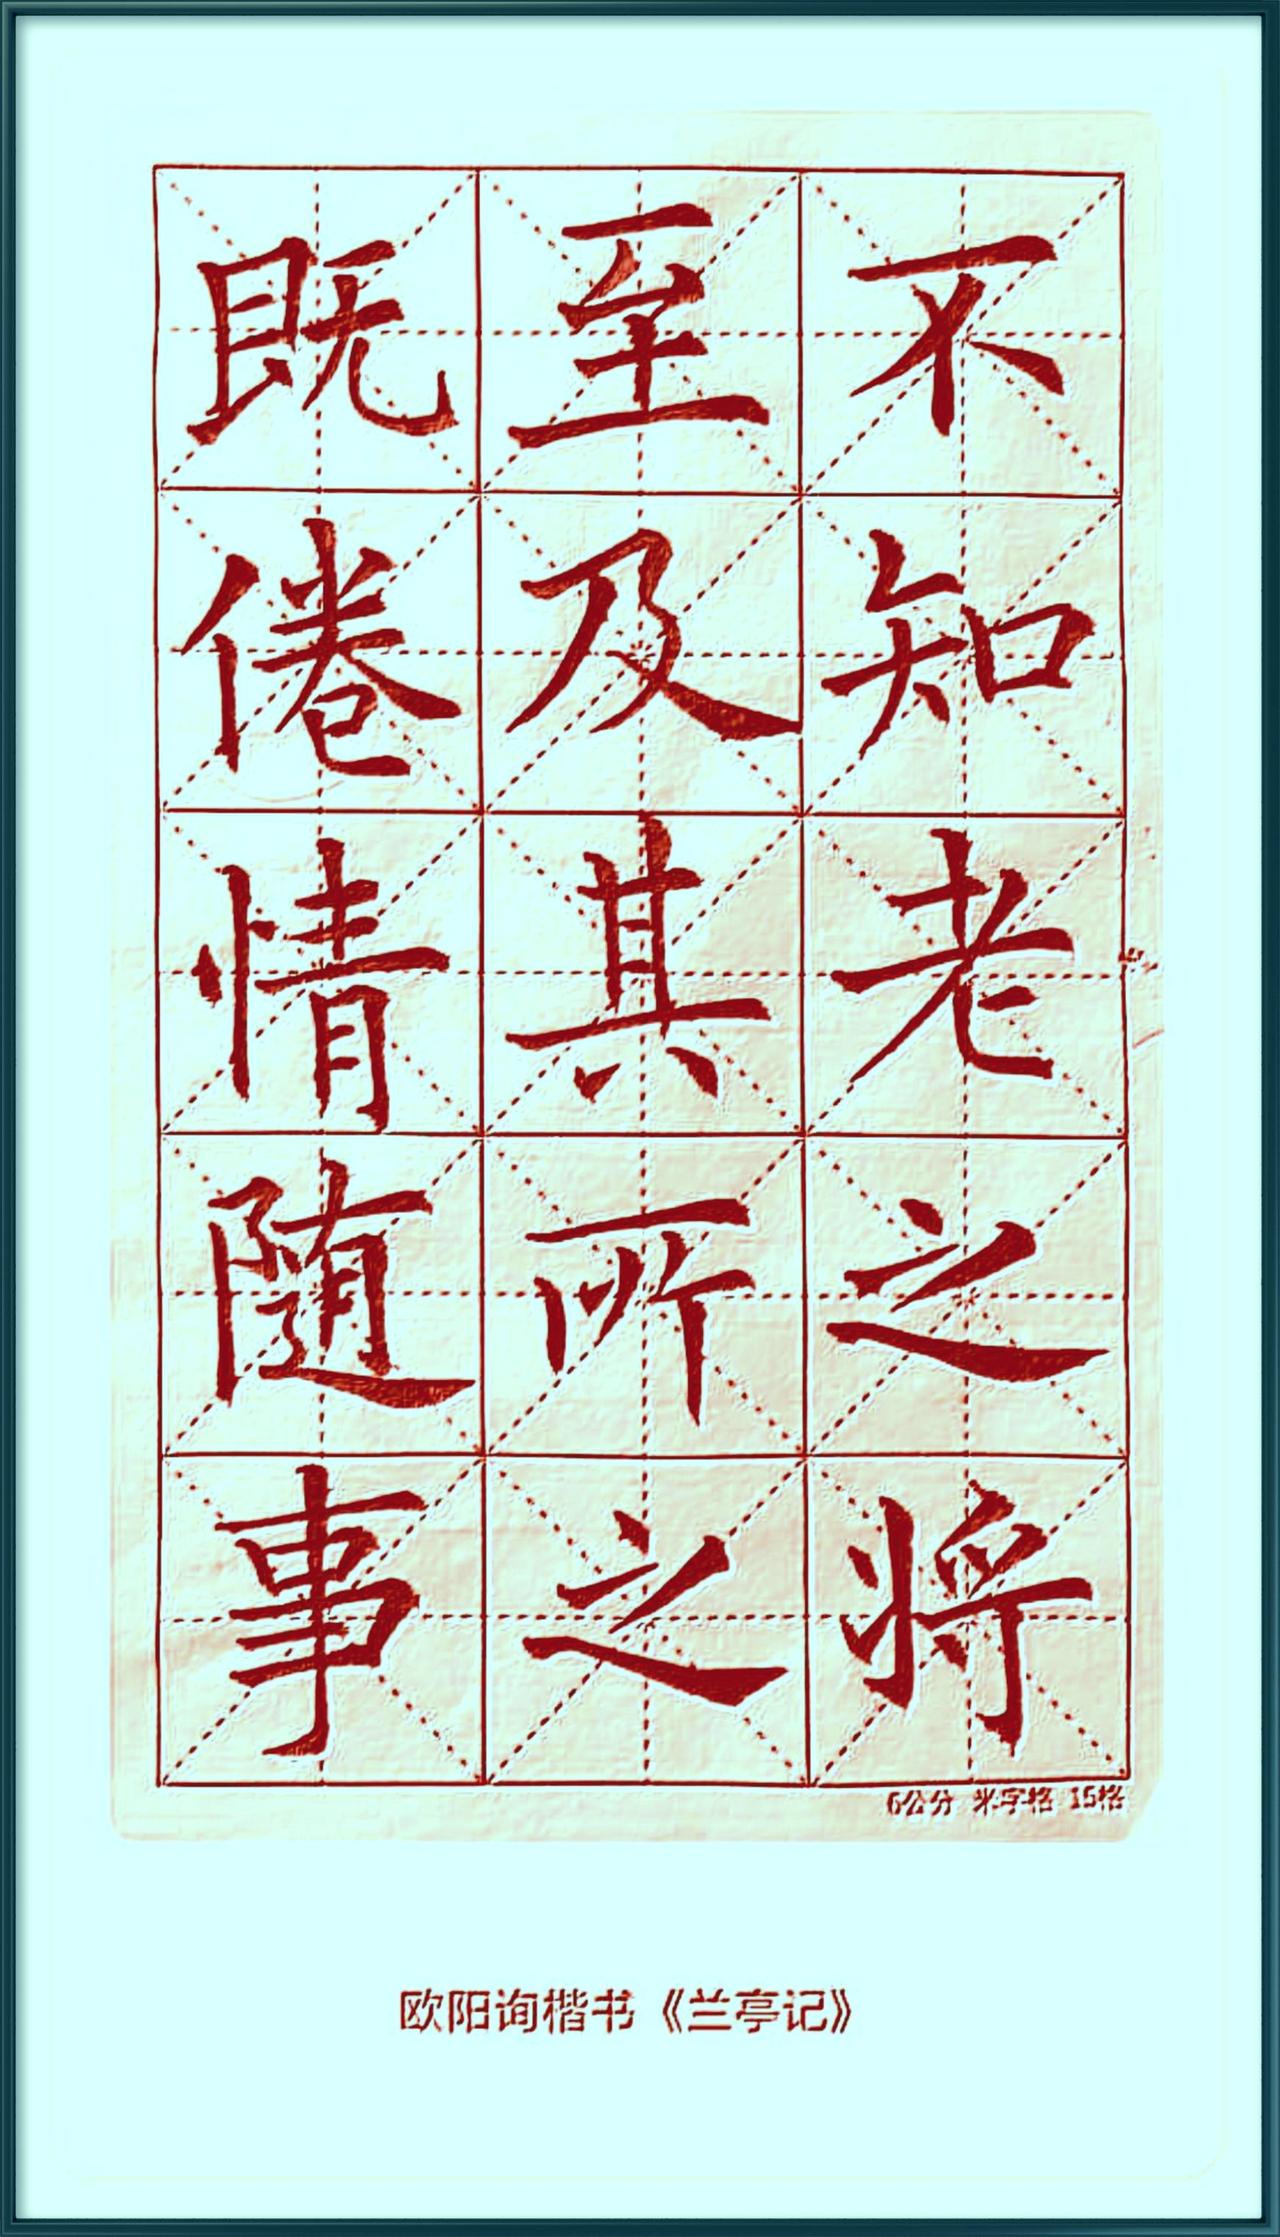 不知老之将
至及其所之
既倦情随事
6公分 米字格 15格
欧阳询楷书《兰亭记》